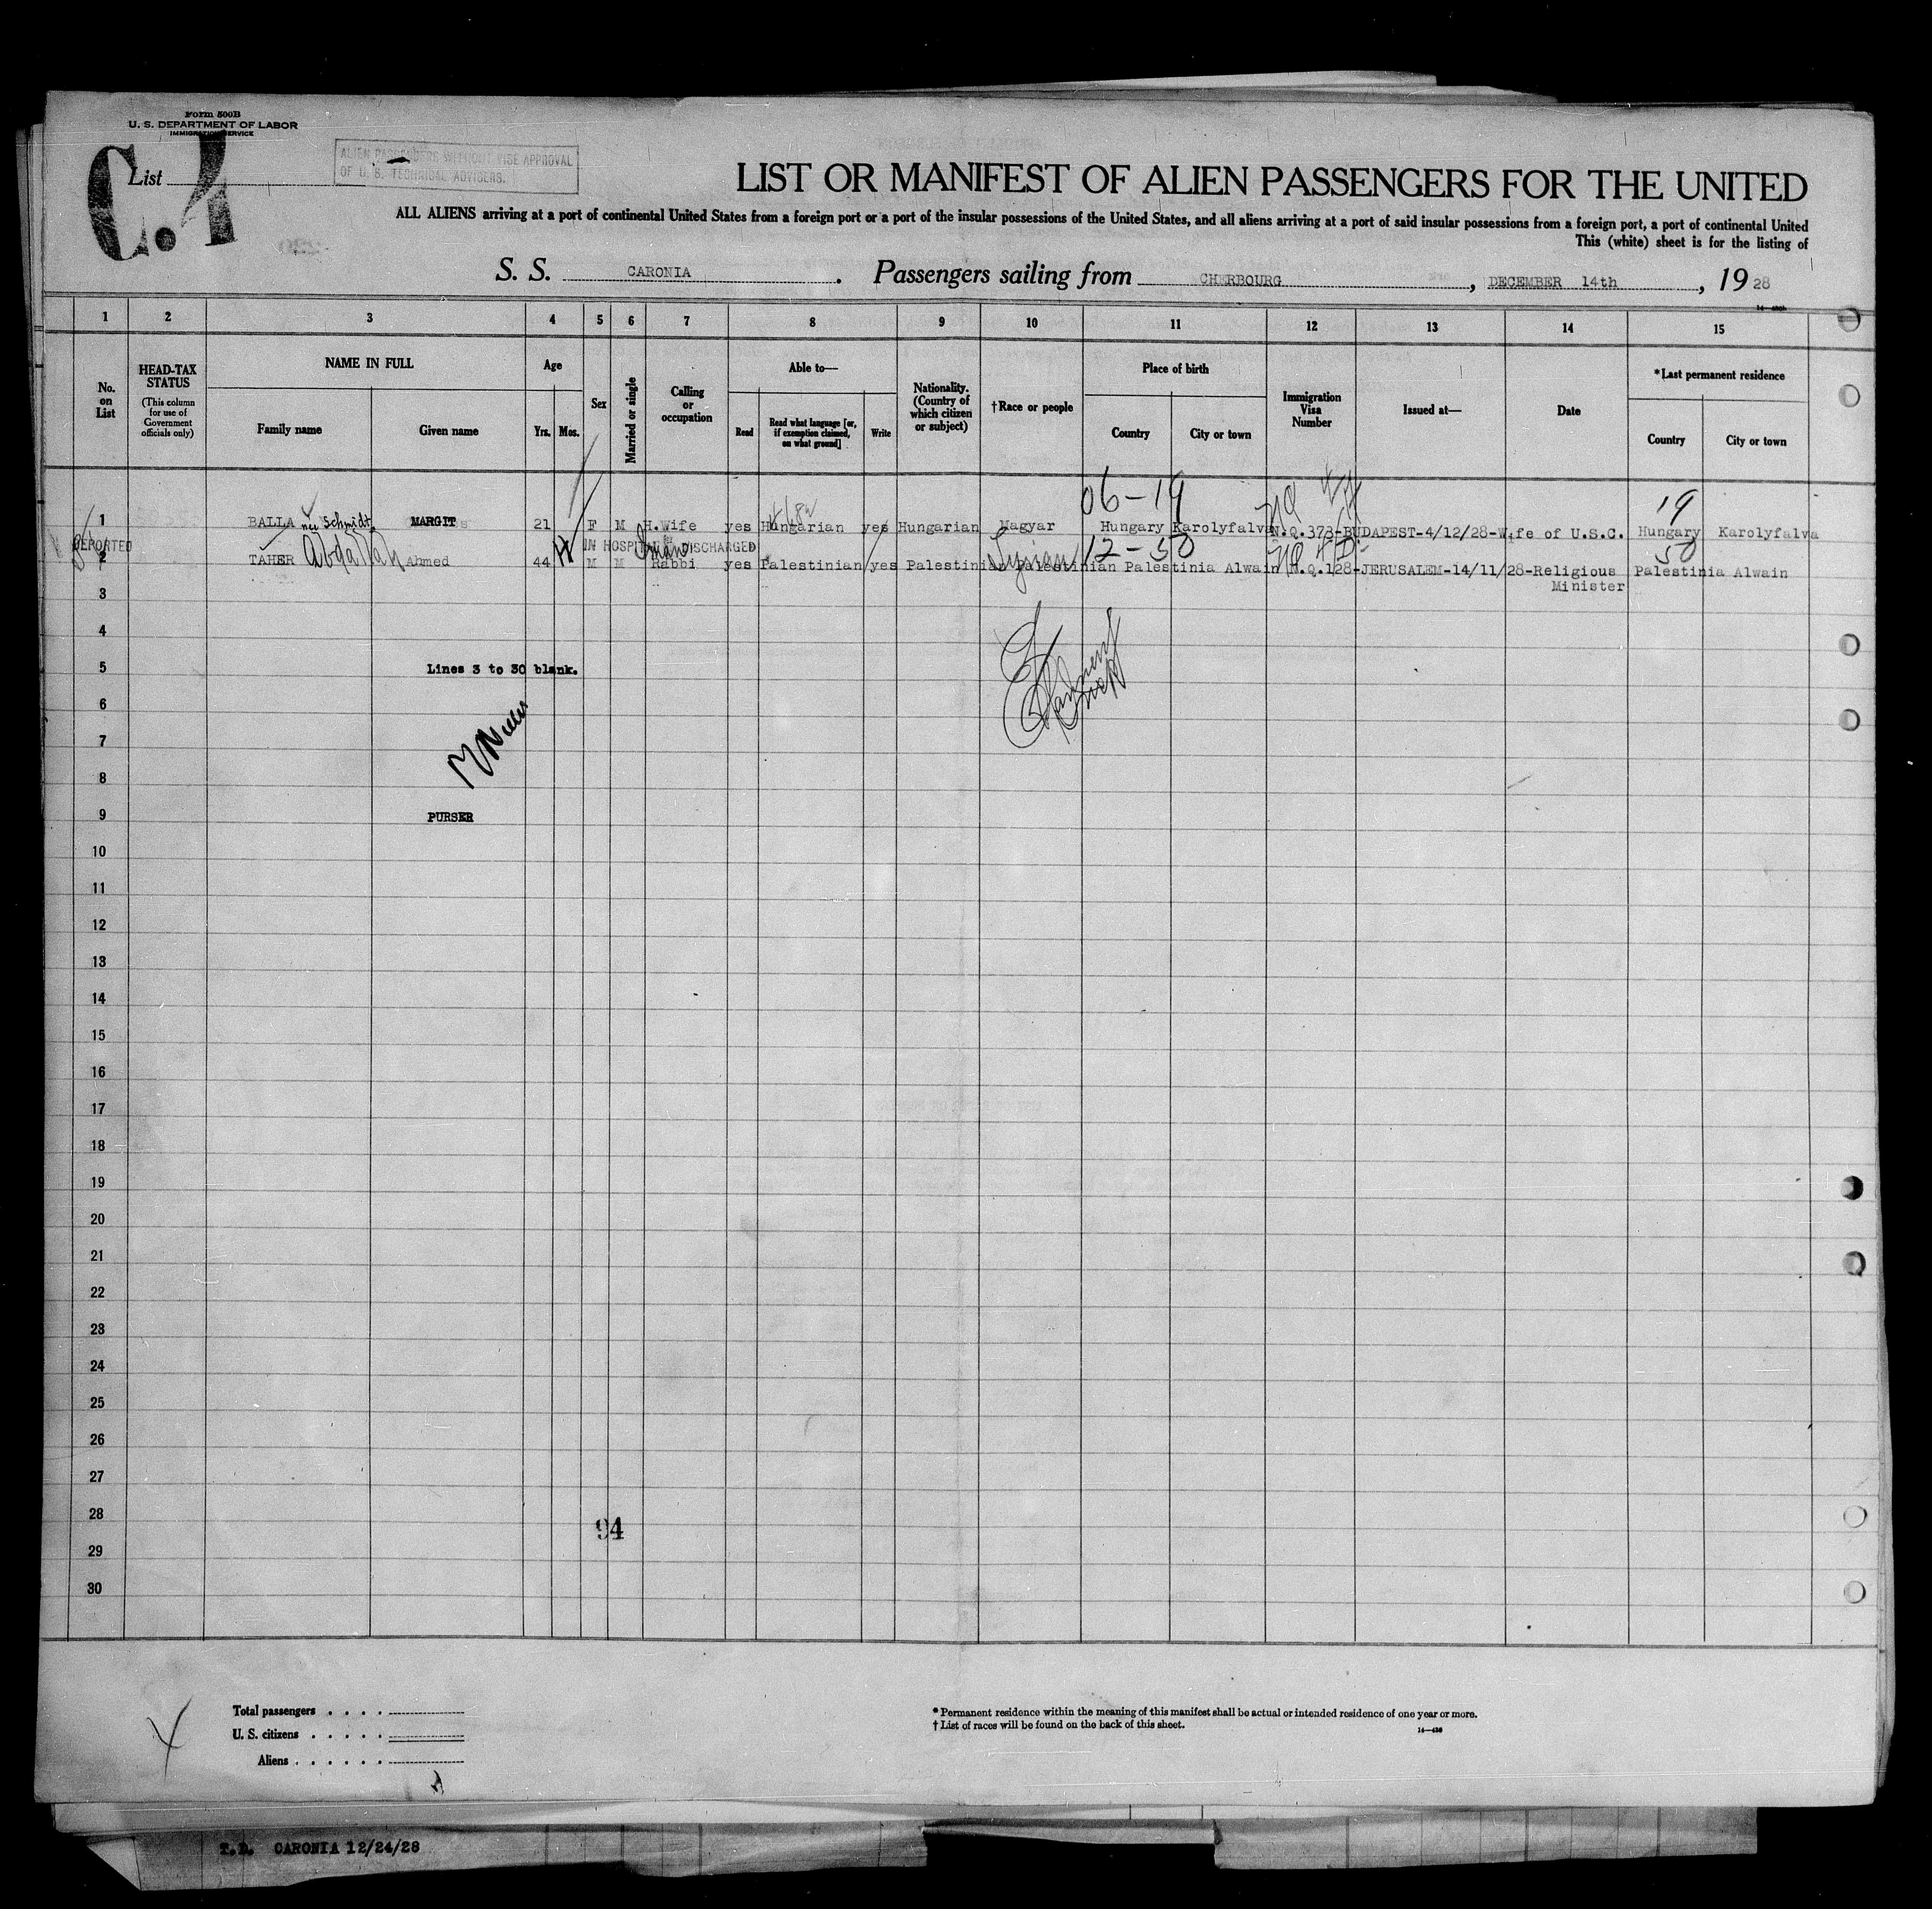 Form 500B
U. S. DEPARTMENT OF LABOR
IMMIGRATION SERVICE
List
C.1
ALIEN PASSENGERS WITHOUT VISE APPROVAL
OF U. S. TECHNICAL ADVISERS.
LIST OR MANIFEST OF ALIEN PASSENGERS FOR THE UNITED
ALL ALIENS arriving at a port of continental United States from a foreign port or a port of the insular possessions of the United States, and all aliens arriving at a port of said insular possessions from a foreign port, a port of continental United
This (white) sheet is for the listing of
S. S. CARONIA. Passengers sailing from CHERBOURG, DECEMBER 14th, 19 28
1 2 3 4 5 6 7 8 9 10 11 12 13 14 15
No. on List
HEAD-TAX STATUS
(This column for use of Government officials only)
NAME IN FULL
Family name Given name
Age
Yrs. Mos.
Sex
Married or single
Calling or occupation
Able to—
Read
Read what language [or, if exemption claimed, on what ground]
Write
Nationality. (Country of which citizen or subject)
†Race or people
Place of birth
Country City or town
Immigration Visa Number
Issued at—
Date
*Last permanent residence
Country City or town
06-19 19
1 BALLA née Schmidt MARGIT 21 F M H.Wife yes Hungarian yes Hungarian Magyar Hungary Karolyfalva N.Q.373-BUDAPEST-4/12/28-Wife of U.S.C. Hungary Karolyfalva
DEPORTED IN HOSPITAL DISCHARGED Syrian 12-50 50
2 TAHER Abdallah Ahmed 44 M M Rabbi yes Palestinian yes Palestinian Palestinian Palestinia Alwain N.Q.128-JERUSALEM-14/11/28-Religious Minister Palestinia Alwain
3
4
5 Lines 3 to 30 blank.
6
7
8
9 PURSER
10
11
12
13
14
15
16
17
18
19
20
21
22
23
24
25
26
27
28
94
29
30
Total passengers . . . .
U. S. citizens . . . . .
Aliens . . . . . .
* Permanent residence within the meaning of this manifest shall be actual or intended residence of one year or more.
† List of races will be found on the back of this sheet.
14—430
T.D. CARONIA 12/24/28